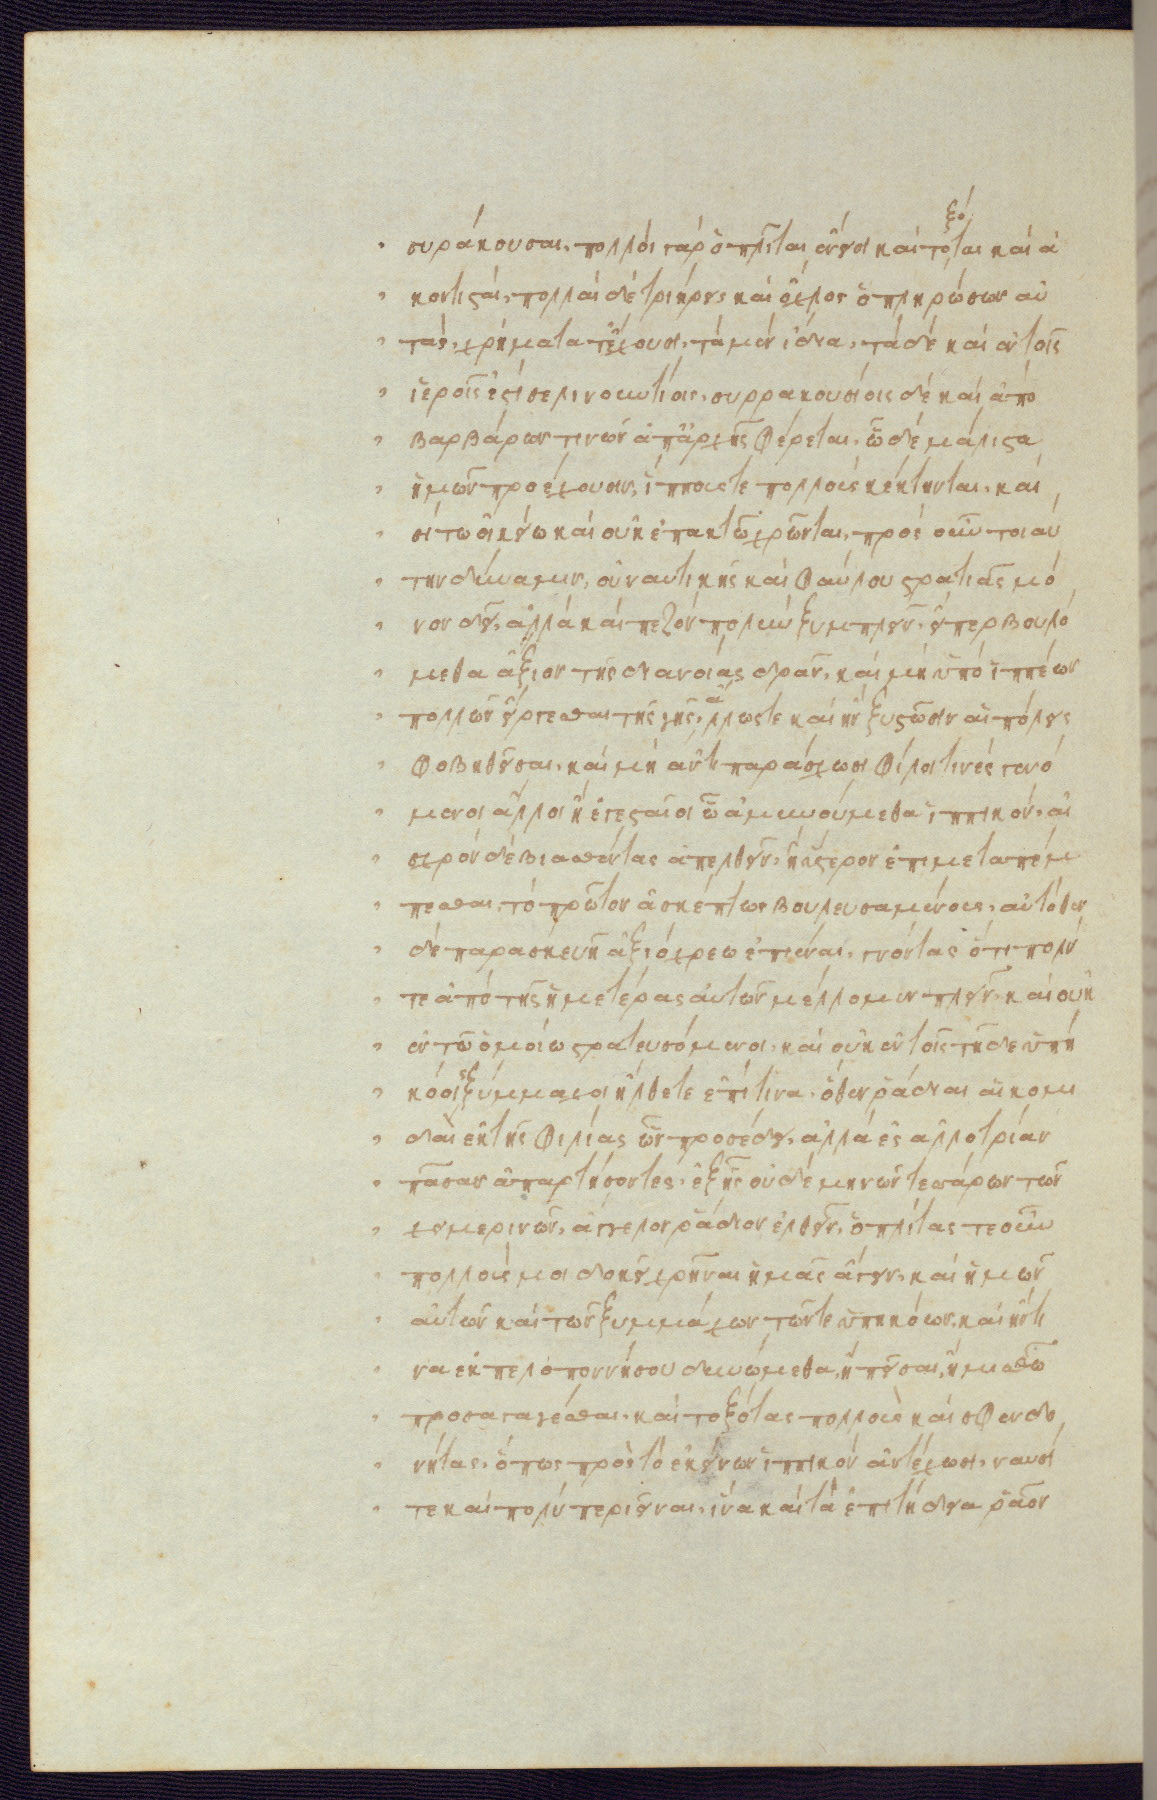 συράκουσαι. πολλοὶ γὰρ ὁπλῖται ἔνεισι καὶ τοξόται καὶ ἀ
κοντισταί. πολλαὶ δὲ τριήρεις καὶ ὄχλος ὁ πληρώσων αὐ
τάς. χρήματα τ' ἔχουσι. τὰ μὲν ἴδια. τὰ δὲ καὶ ἐν τοῖς
ἱεροῖς ἐστὶ σελινουντίοις. συρρακουσίοις δὲ καὶ ἀπὸ
βαρβάρων τινῶν ἀπαρχῆς φέρεται. ᾧ δὲ μάλιστα
ἡμῶν προέχουσιν, ἵππους τε πολλοὺς κέκτηνται. καὶ
σίτω οἰκείω καὶ οὐκ ἐπακτῶ χρῶνται. πρὸς οὖν τοιαύ
την δύναμιν, οὐ ναυτικῆς καὶ φαύλου στρατιᾶς μό
νον δεῖ. ἀλλὰ καὶ πεζὸν πολὺν ξυμπλεῖν. εἴπερ βουλό
μεθα ἄξιον τῆς διανοίας δρᾶν. καὶ μὴ ὑπὸ ἱππέων
πολλῶν εἴργεσθαι τῆς γῆς. ἄλλως τε καὶ ἢν ξυστῶσιν αἱ πόλεις
φοβηθεῖσαι. καὶ μὴ ἀντιπαράσχωσι φίλοι τινὲς γενό
μενοι ἄλλοι ἢ ἐγεσταῖοι ᾧ ἀμυνούμεθα ἱππικόν. αἰ
σχρὸν δὲ βιασθέντας ἀπελθεῖν. ἢ ὕστερον ἐπιμεταπέμ
πεσθαι. τὸ πρῶτον ἀσκέπτως βουλευσαμένους. αὐτόθεν
δὲ παρασκευῆ ἀξιόχρεω ἐπιέναι. γνόντας ὅτι πολύ
τε ἀπὸ τῆς ἡμετέρας αὐτῶν μέλλομεν πλεῖν. καὶ οὐκ
ἐν τῶ ὁμοίω στρατευσόμενοι. καὶ οὐκ ἐν τοῖς τῆδε ὑπη
κόοις ξύμμαχοι ἤλθετε ἐπί τινα. ὅθεν ῥάδιαι αἱ κομι
δαὶ ἐκ τῆς φιλίας ὧν προσέδει. ἀλλὰ ἐς ἀλλοτρίαν
πᾶσαν ἀπαρτήσοντες. ἐξ ἧς οὐδὲ μηνῶν τεσσάρων τῶν
χειμερινῶν. ἄγγελον ῥάδιον ἐλθεῖν. ὁπλίτας τε οὖν
πολλούς μοι δοκεῖ χρῆναι ἡμᾶς ἄγειν. καὶ ἡμῶν
αὐτῶν καὶ τῶν ξυμμάχων τῶν τε ὑπηκόων. καὶ ἤν τι
να ἐκ πελοποννήσου δυνώμεθα. ἢ πεῖσαι. ἢ μισθῶ
προσαγαγέσθαι. καὶ τοξότας πολλοὺς καὶ σφενδο
νήτας. ὅπως πρὸς τὸ ἐκείνων ἱππικὸν ἀντέχωσι. ναυσί
τε καὶ πολὺ περιεῖναι. ἵνα καὶ τὰ ἐπιτήδεια ῥᾶον